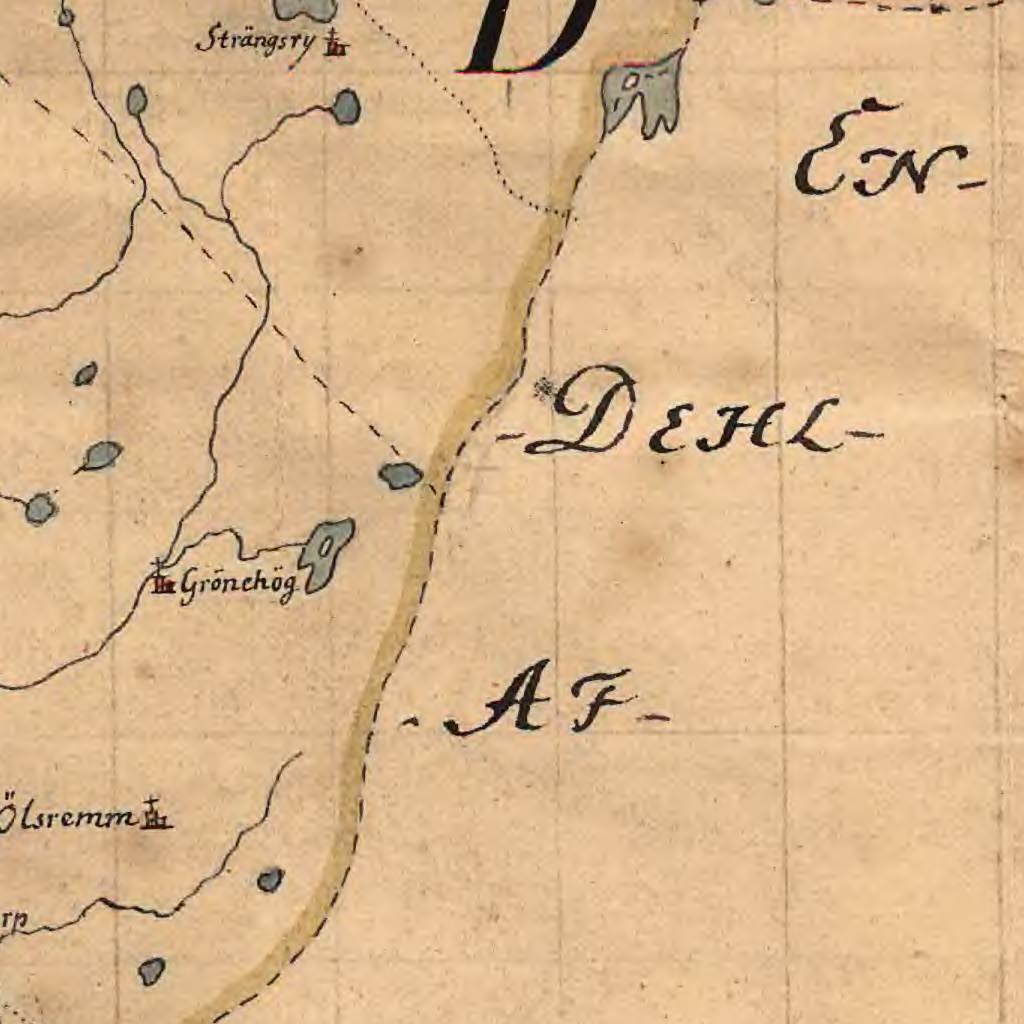 Strängsry
D
EN-
-DEHL-
Grönehög
-AF-
Ölsremm
rp